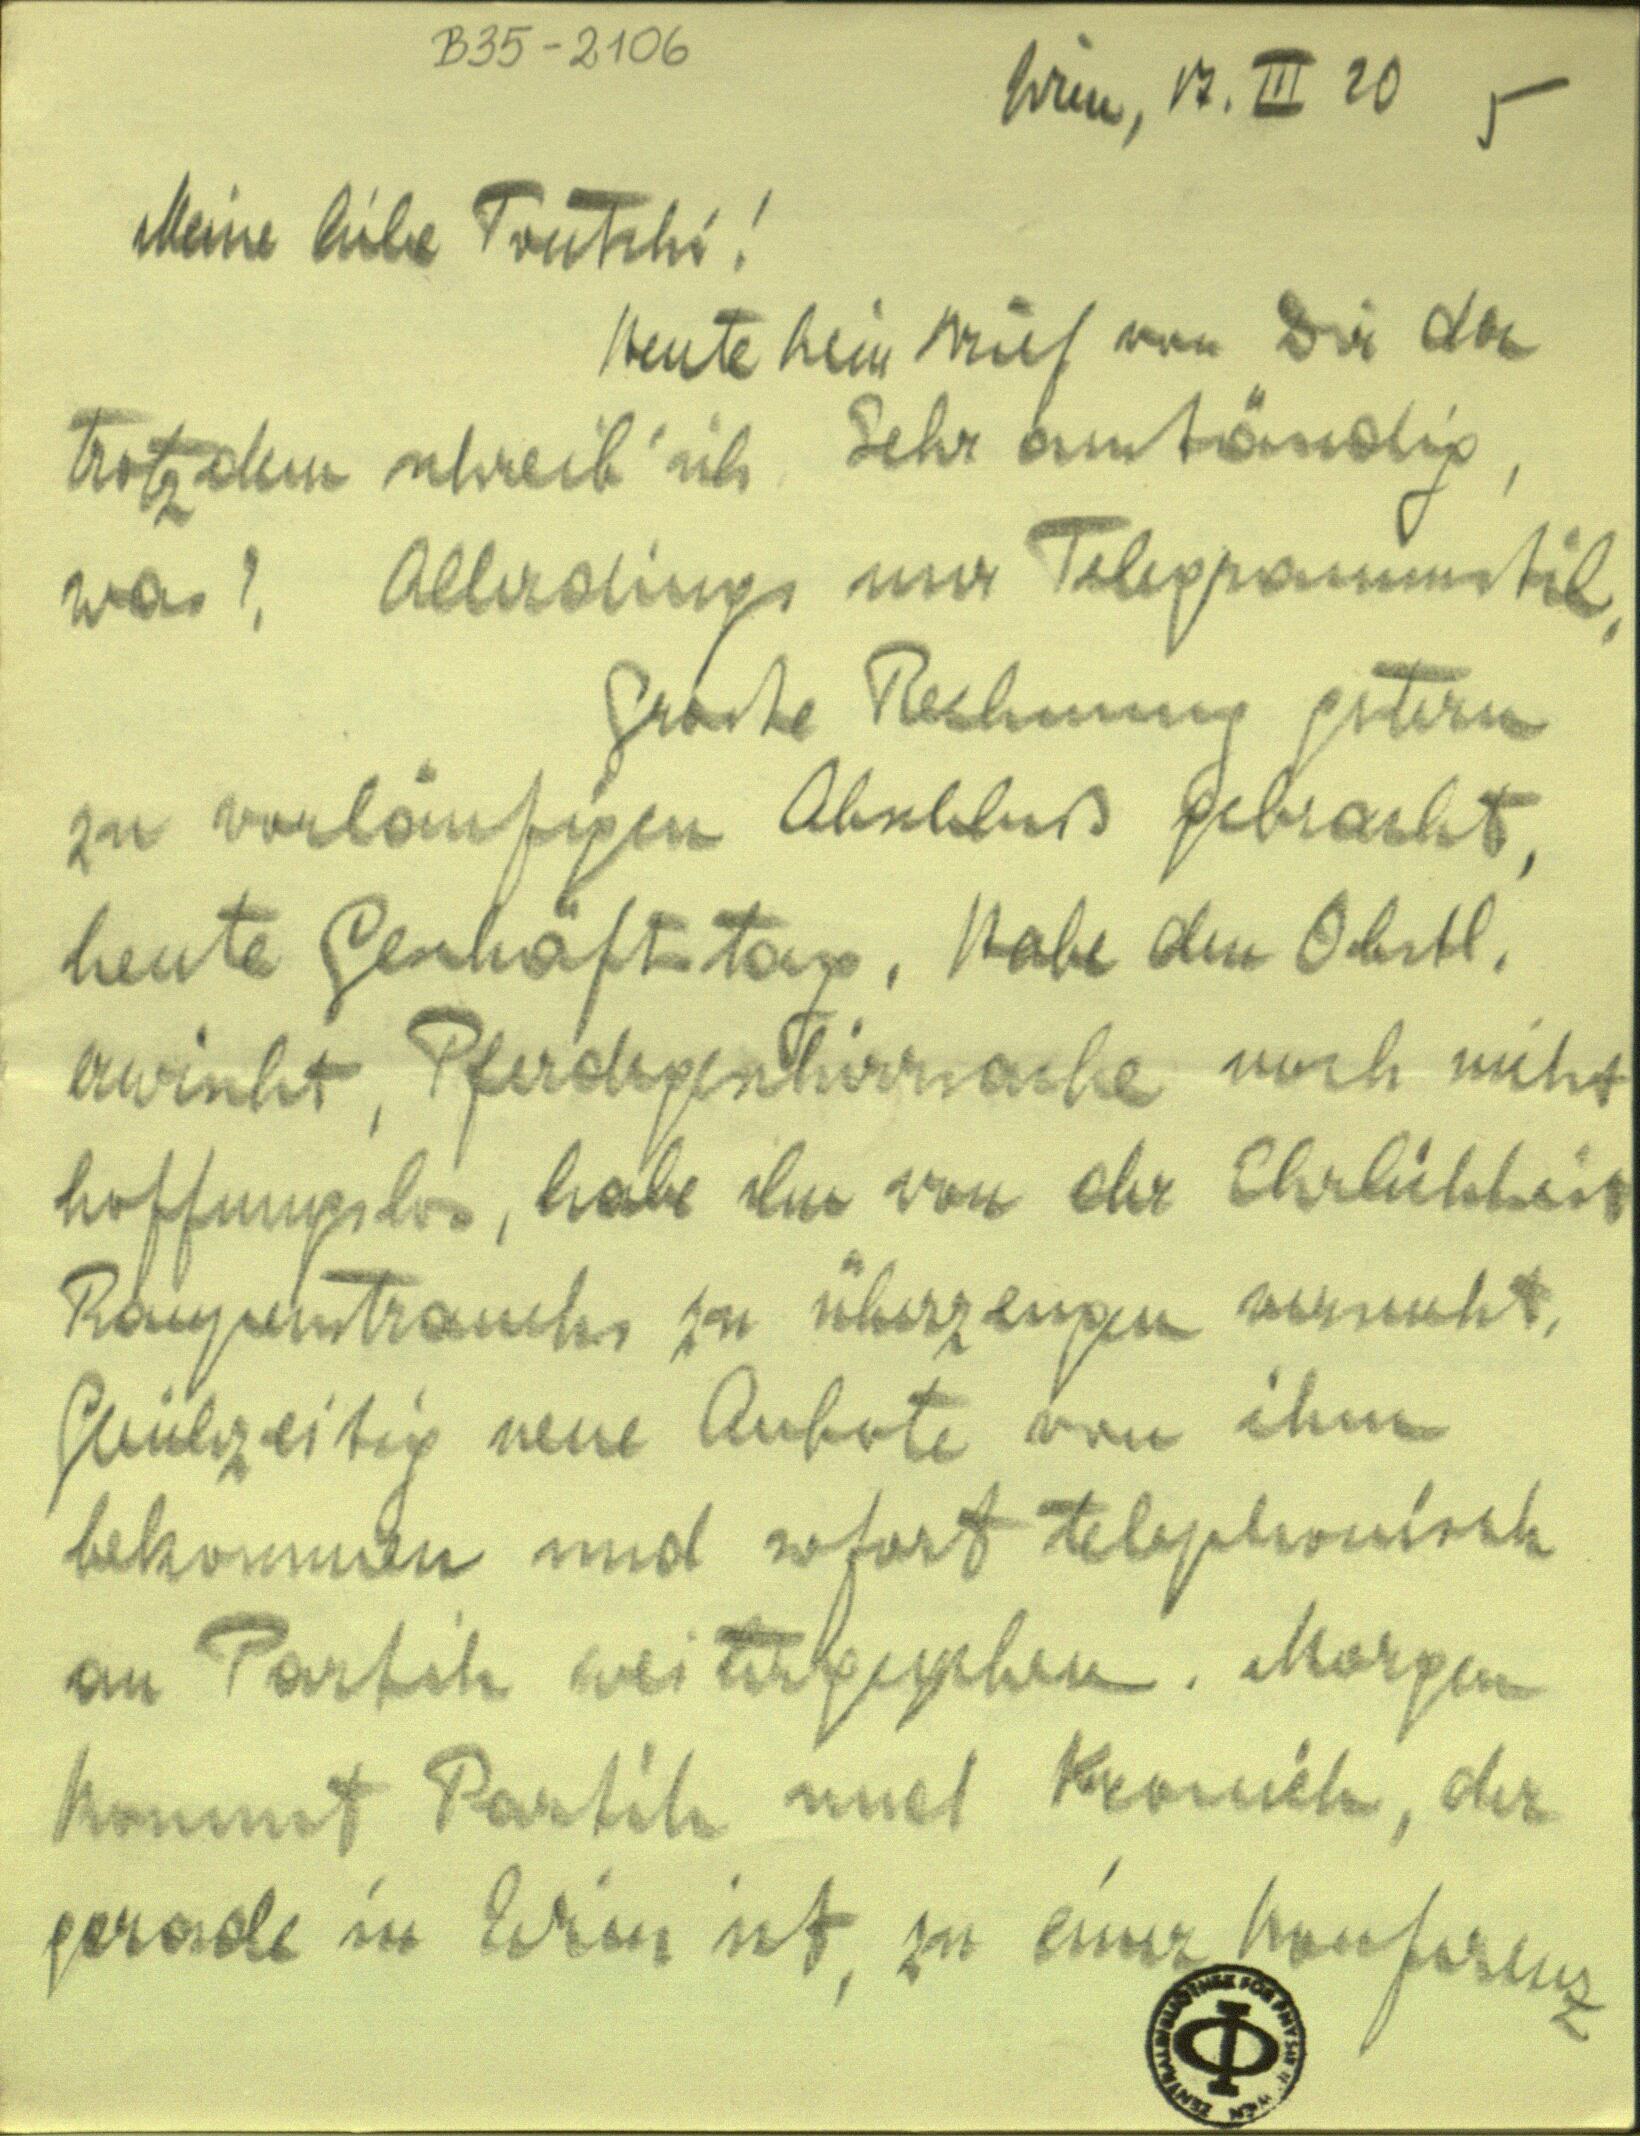 B35-2106
Wien, 17. III 20 5
Meine liebe Trutschi!
Heute kein Brief von Dir da
trotzdem schreib' ich. Sehr anständig,
was?. Allerdings nur Telegrammstil.
Große Rechnung gestern
zu vorläufigen Abschluß gebracht,
heute Geschäftstag. Habe den Obstl.
erwischt, Pferdegeschirrsache noch nicht
hoffnungslos, habe ihn von der Ehrlichkeit
Raupenstrauchs zu überzeugen versucht.
Gleichzeitig neue Anbote von ihm
bekommen und sofort telephonisch
an Partik weitergegeben. Morgen
kommt Partik und Kronich, der
gerade in Wien ist, zu einer Konferenz
ZENTRALBIBLIOTHEK FÜR PHYSIK WIEN